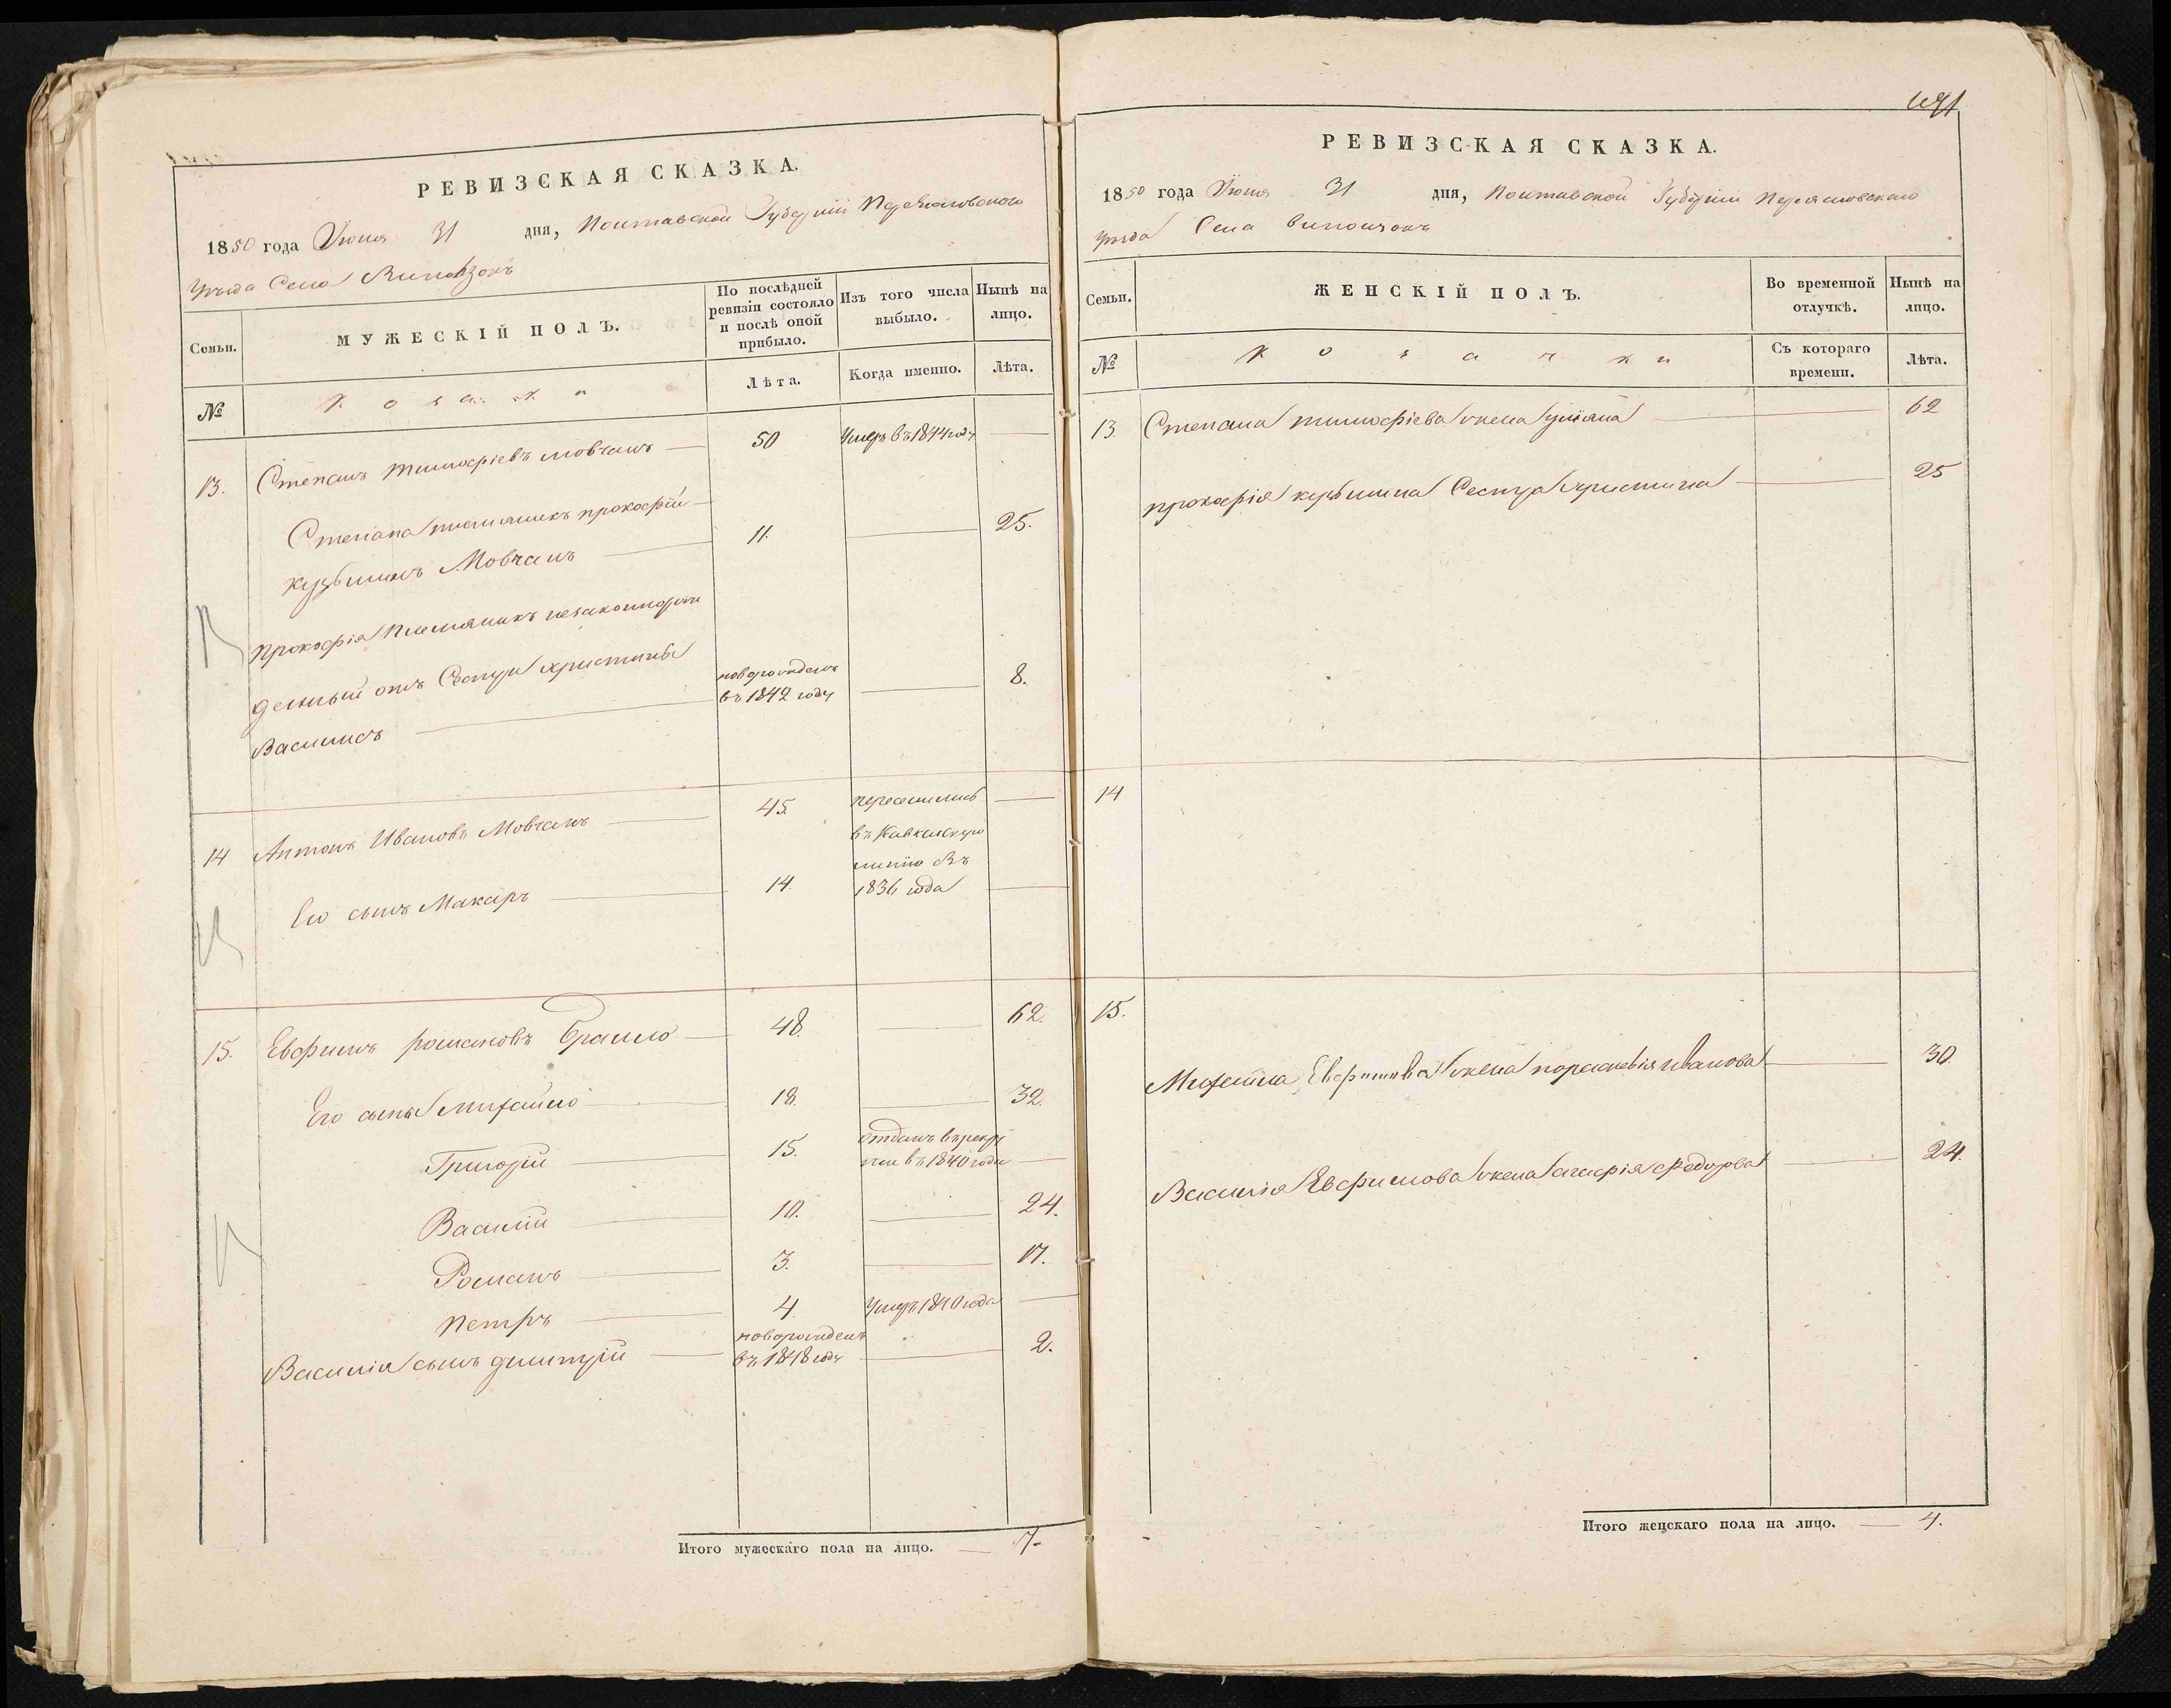 РЕВИЗСКАЯ СКАЗКА.
1850 года Июня 31 дня, Полтавской Губернии Переяславского
Уезда Села
Семьи.
МУЖЕСКІЙ ПОЛЪ.
По послѣдней ревизіи состояло и послѣ оной прибыло.
Изъ того числа выбыло.
Нынѣ на лицо.
№
Козаки
Лѣта.
Когда именно.
Лѣта.
13. Степанъ Тимофіевъ Мовчанъ 50 Умеръ въ 1844 году
Степана племяникъ прокофій
кузьминъ Мовчанъ 11. 25.
Прокофія племяникъ незаконорож
денный отъ Сестри христины
Василий новорожденъ въ 1842 году 8.
14 Антонъ Ивановъ Мовчанъ 45. переселились
въ Кавказскую
линію Въ
Его сынъ Макаръ 14. 1836 года
15. Евфимъ романовъ 48. 62.
Его сыны Михайло 18. 32.
Григорій 15. отданъ въ рекру
ти въ 1840 годе
Василій 10. 24.
Романъ 3. 17.
Петръ 4. Умеръ 1840 года
Василія сынъ димитрій новорожденъ въ 1848 году 2.
Итого мужескаго пола на лицо. 7.
691
РЕВИЗСКАЯ СКАЗКА.
1850 года Июня 31 дня, Полтавской Губерніи Переясловского
Уезда Села
Семьи.
ЖЕНСКІЙ ПОЛЪ.
Во временной отлучкѣ.
Нынѣ на лицо.
№
Козачки
Съ котораго времени.
Лѣта.
13. Степана тимофіева жена уліяна 62
прокофія кузьмина Сестра христина 25
14
15.
Михайла Евфимова жена параскевія иванова 30.
Василія Евфимова жена агафія федорова 24.
Итого женскаго пола на лицо. 4.